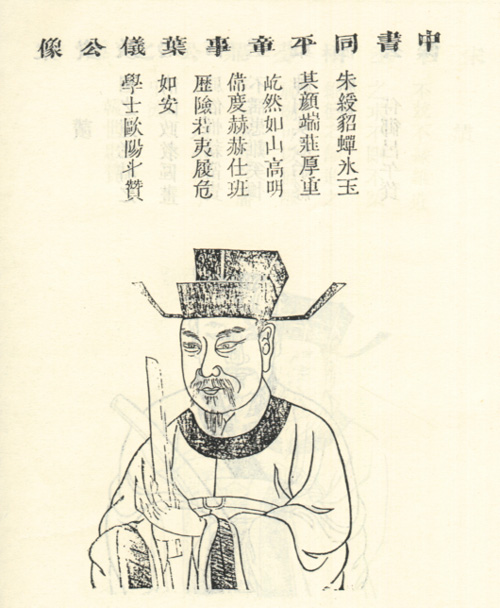 中書同平章事葉儀公像
朱綬貂蟬氷玉
其顔端莊厚重
屹然如山高明
偹度赫赫仕班
歴險若夷履危
如安
學士歐陽斗贊